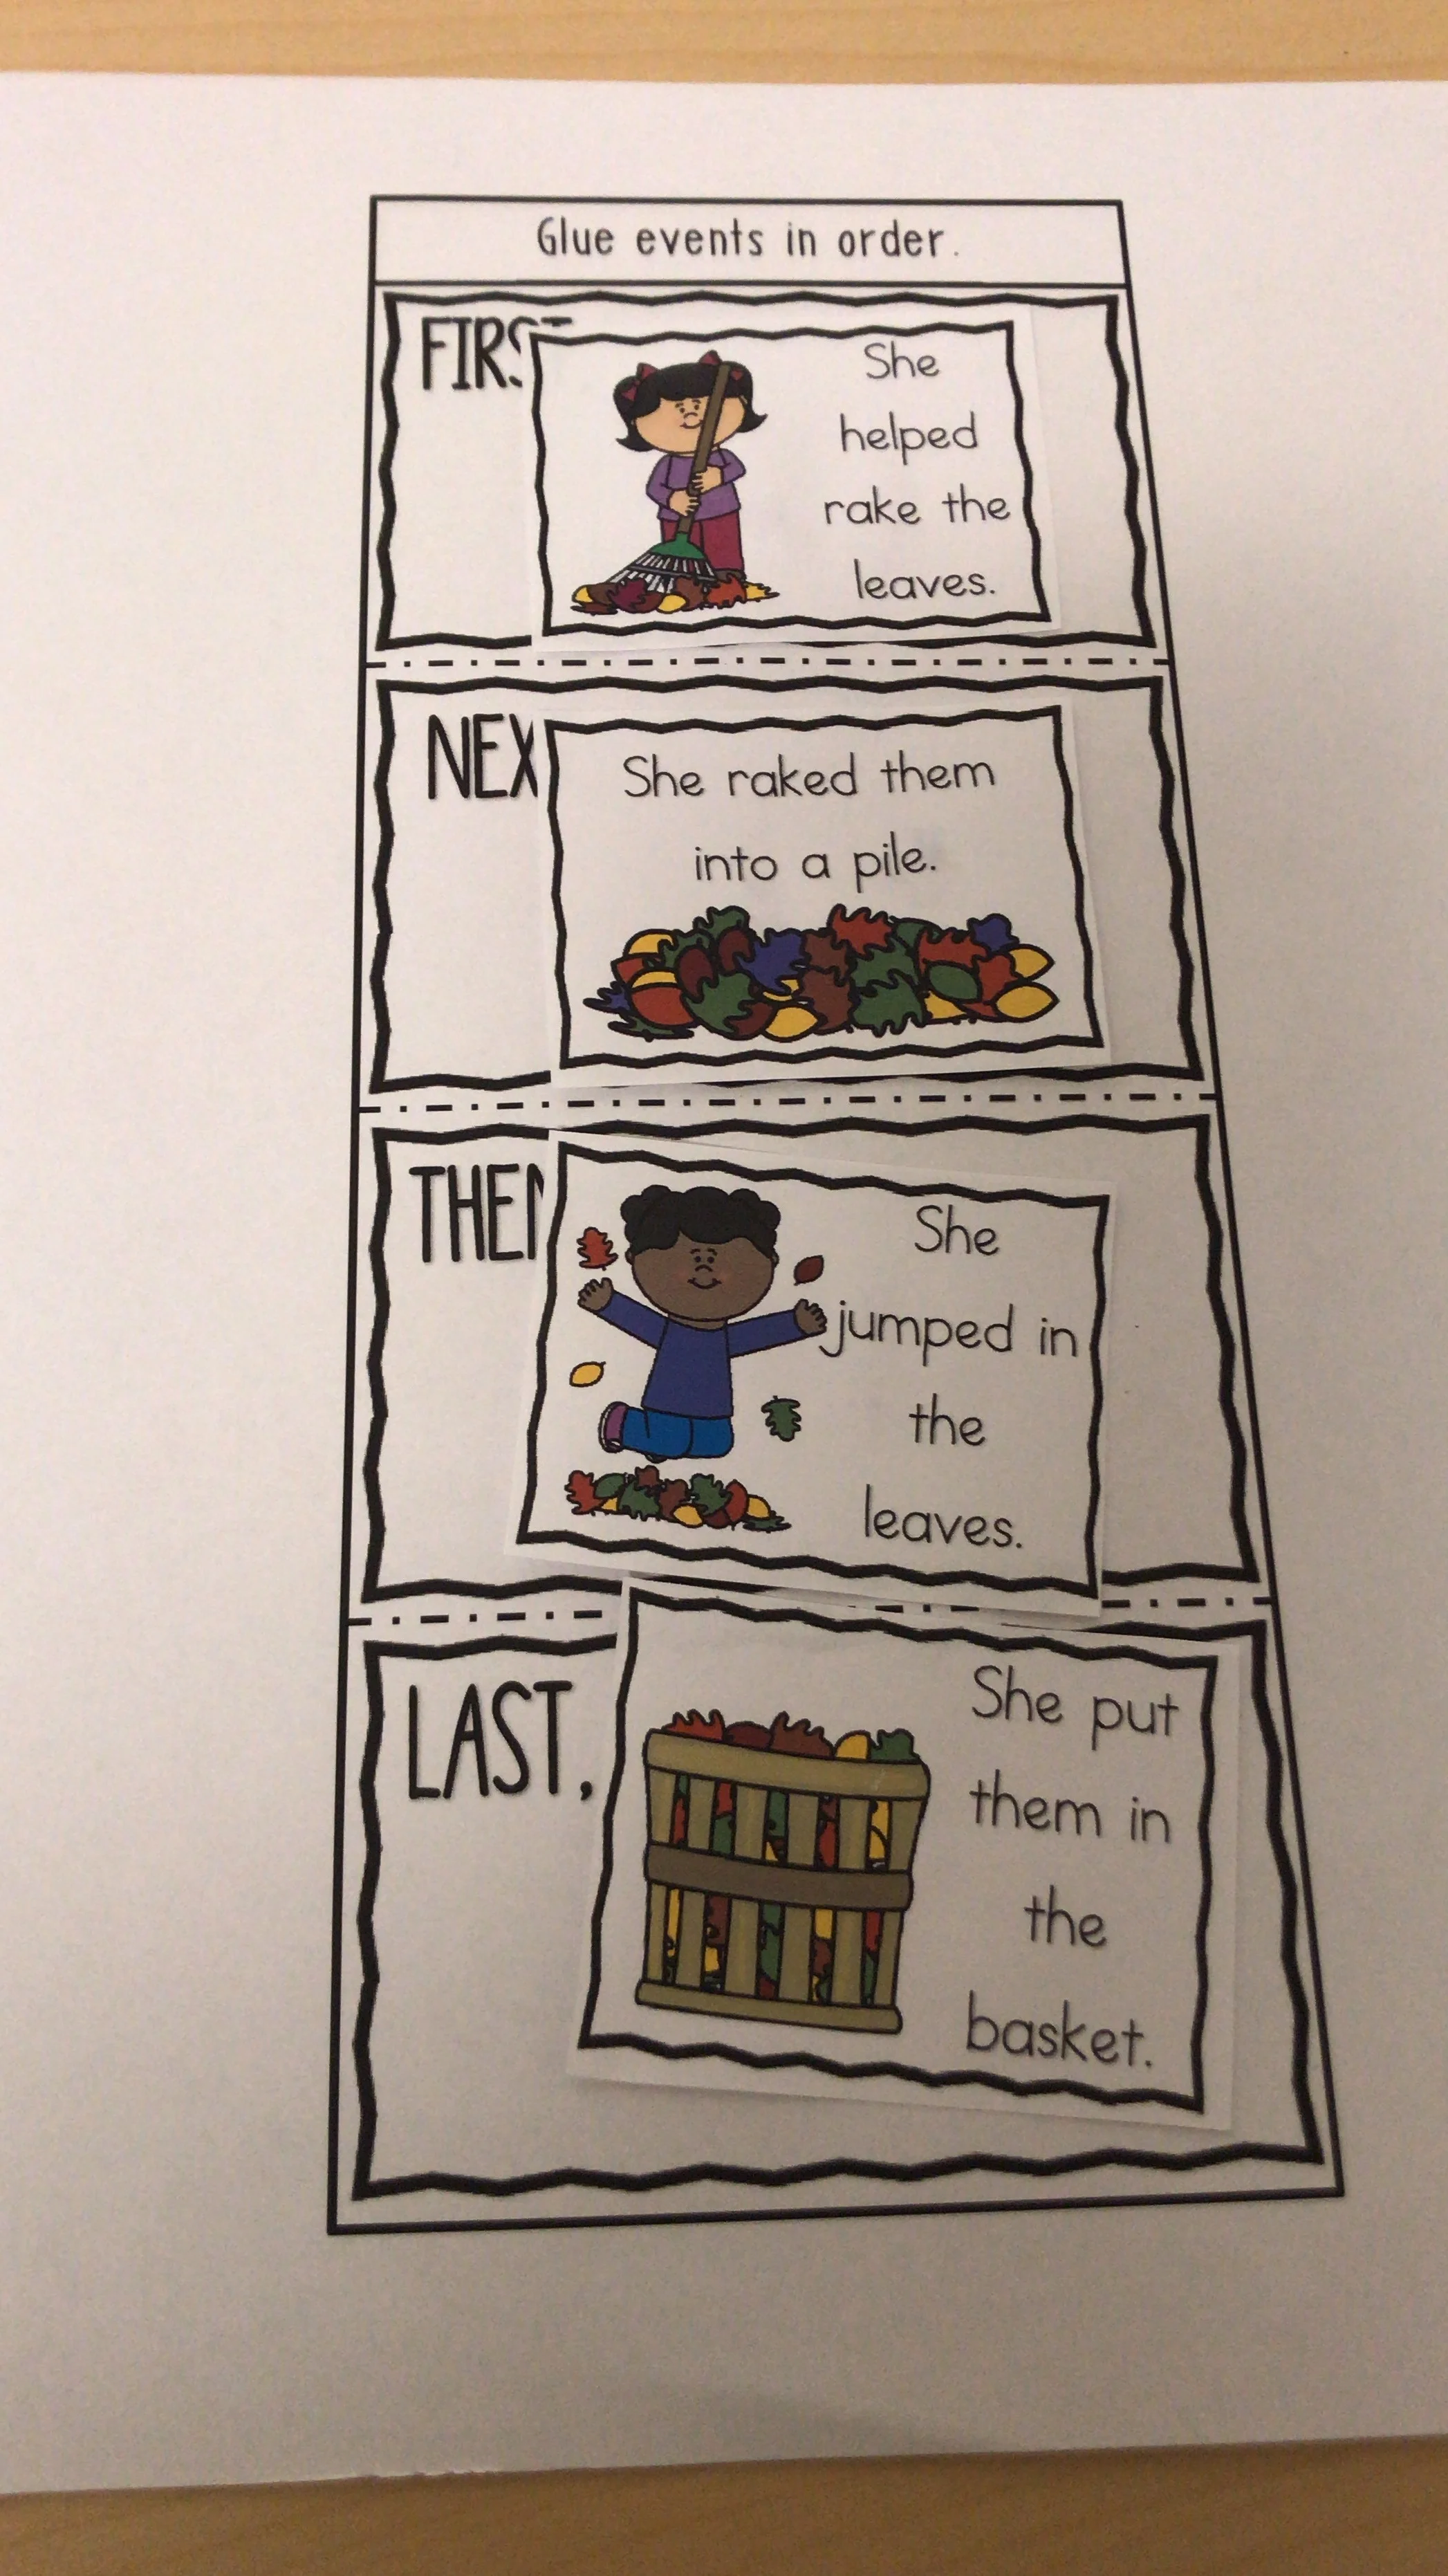 Glue events in order.
FIRST
She
helped
rake the
leaves.
NEX
She raked them
into a pile.
THEN
She
jumped in
the
leaves.
LAST,
She put
them in
the
basket.